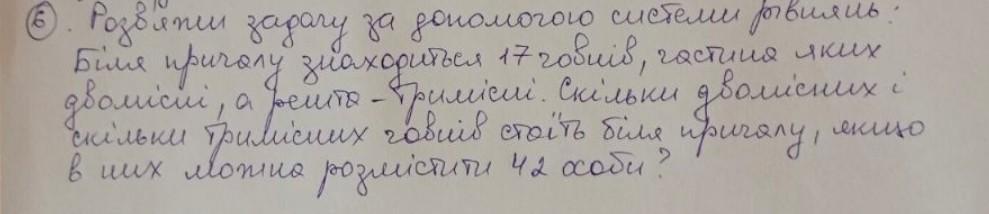 6. Розв'яжи задачу за допомогою системи рівнянь:
Біля причалу знаходиться 17 човнів, частина яких
двомісні, а решта - тримісні. Скільки двомісних і
скільки тримісних човнів стоїть біля причалу, якщо
в них можна розмістити 42 особи?